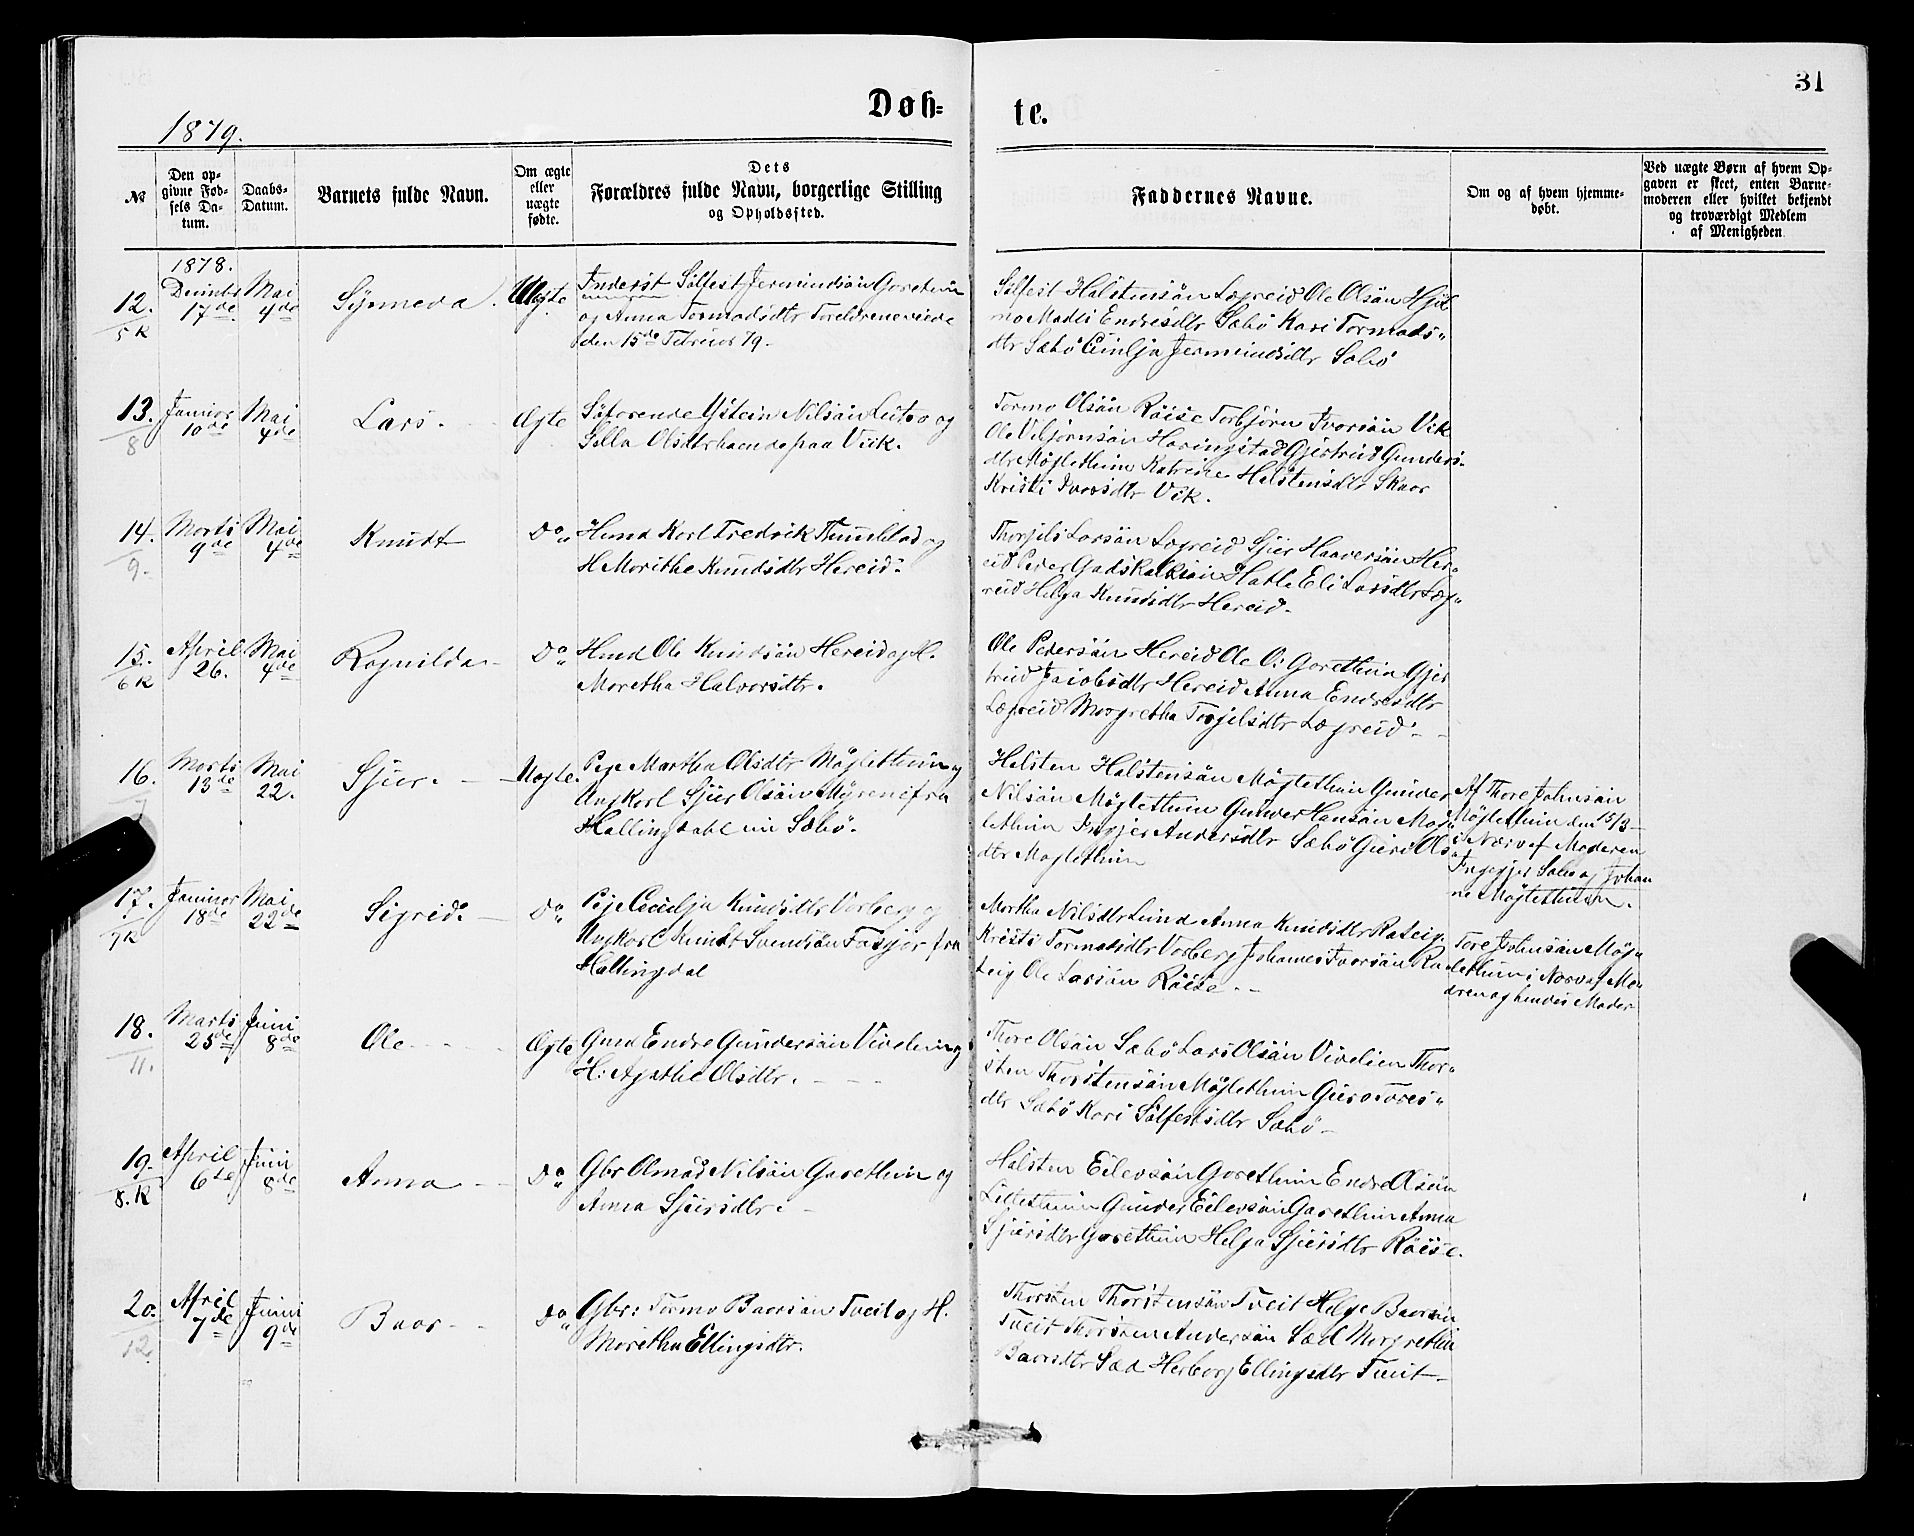 31
Døb-
te.
1879.
№
Den op-
givne Fød-
sels Da-
tum.
Daabs-
Datum.
Barnets fulde Navn.
Om ægte
eller
uægte
fødte.
Dets
Forældres fulde Navn, borgerlige Stilling
og Opholdssted.
Faddernes Navne.
Om og af hvem hjemme-
døbt.
Ved uægte Børn af hvem Op-
gaven er skeet, enten Barne-
moderen eller hvilket bekjendt
og troværdigt Medlem
af Menigheden
1878.
12.
5 K
17de
Mai
4de
Synneva.
Uægte
Inderst Sølfest Jermundsän Garethun
og Anna Tormodsdtr Foreldrene viede
den 15de Februar 79.
Sølfest Halstensän Lægreid Ole Olsän Hjæl
mo Madli Endresdtr Sæbö Kari Tormods-
dtr Sæbö Jermundsdtr Sæbö
13.
8
Januar
10de
Mai
4de
Lars.
Ægte
Søfarende Ystein Nilsän og
Olsdtr paa Viik.
Tormo Olsän Röise Torbjörn Ivorsän Vik
Ole Vibjörnsän Haringstad Gjertrud Gunders-
dtr Möglethun Katrine Halstensdtr Skaar
Kristi Ivorsdtr Vik.
14.
9.
Marts
9de
Mai
4de
Knudt
Do
Hmnd Karl Fredrik og
H Marithe Knudsdtr Hereid.
Thorjels Larsän Lægreid Sjur Haaversän Her-
eid Peder Gadskalksän Hatle Eli Larsdtr Læg-
reid Helga Knudsdtr Hereid.
15.
6 K
April
26.
Mai
4de
Ragnilda
Do
Hmnd Ole Knudsän Hereid og H.
Maretha Halvorsdtr.
Ole Pedersän Hereid Ole O: Garethun Gjer
trud Jacobsdtr Hereid Anna Endresdtr
Lægreid Margretha Torjelsdtr Lægreid.
16.
7
Marts
13de
Mai
22.
Sjur.
Uægte.
Pige Martha Olsdtr Möglethun og
Ungkarl Sjur Olsän Myrene fra
Hallingdahl nu Sæbö.
Halsten Halstensän Möglethun Gunder
Nilsän Möglethun Gunder Hansän Mög-
lethun Ingjer Andersdtr Sæbö Guro Ols-
dtr Möglethun
Af Thore Johnsän
Möglethun den 15/3
i Nærv af Moderen
Ingejer Sæbö og Johan
ne Möglethun.
17.
7 K
Januar
18de
Mai
22de
Sigrid.
Do
Pige Cecilja Knudsdtr Varberg og
Ungkarl Knudt Svendsän fra
Hallingdal
Martha Nilsdtr Lund Anna Knudsdtr
Kristi Tormodsdtr Varberg Johannes Ivorsän
Ole Larsän Röise.
Tore Johnsän Mög-
lethun i Nærv af Mo-
dren og hendes Moder
18.
11.
Marts
25de
Juni
8de
Ole
Ægte
Gmd Endre Gundersän Vivelien og
H: Agathe Olsdtr.
Thore Olsän Sæbö Lars Olsän Vivelien Thor-
sten Thorstensän Möglethun Guro Tores-
dtr Sæbö Kari Sölfestsdtr Sæbö
19.
8. K
April
6te
Juni
8de
Anna
Do
Gbr Olmod Nilsän Garethun og
Anna Sjursdtr.
Halsten Eilevsän Garethun Endre Olsän
Lillethun Gunder Eilevsän Garethun Anna
Sjursdtr Garethun Helga Sjursdtr Röise.
20.
12
April
7de
Juni
9de
Baar
Do
Gbr: Tormo Baarsän Tveit og H.
Maritha Ellingsdtr.
Thorsten Thorstensän Tveit Helge Baarsän
Tveit Thorsten Andersän Sæd Margretha
Baarsdtr Sæd Herborg Ellingsdtr Tveit